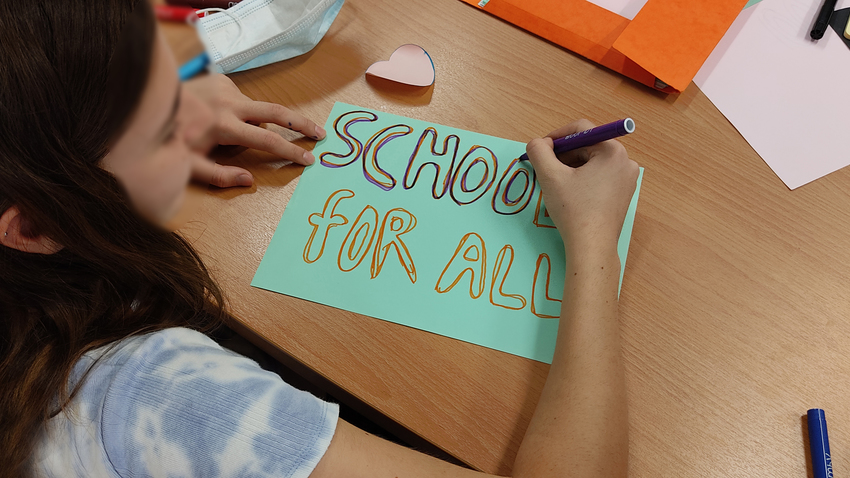 SCHOOL
FOR ALL